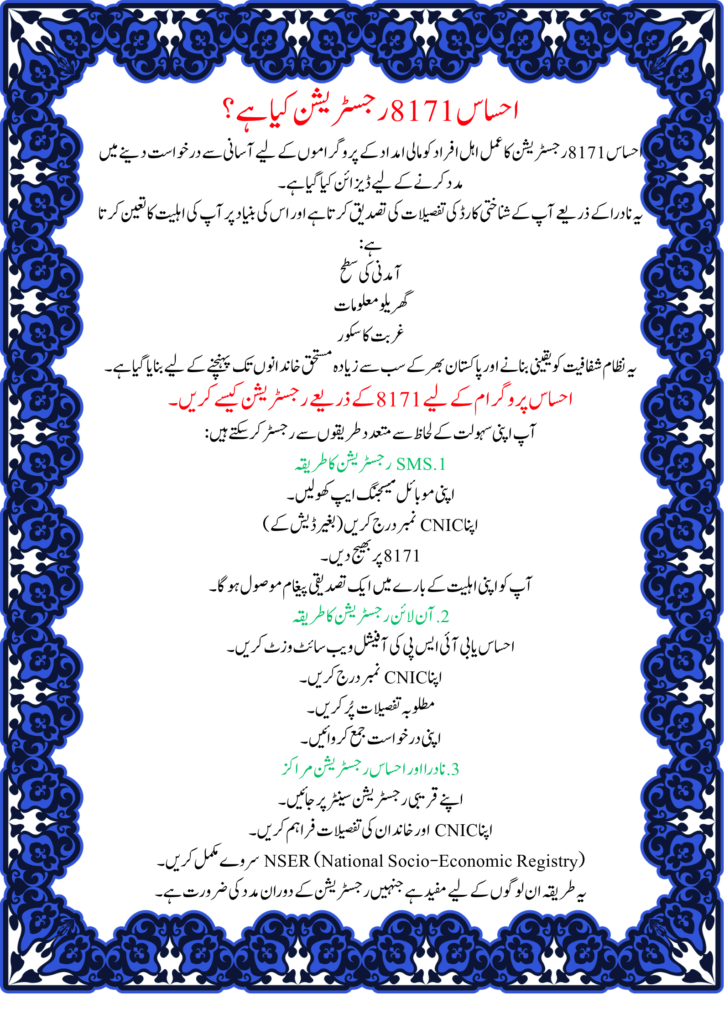 احساس 8171 رجسٹریشن کیا ہے؟
احساس 8171 رجسٹریشن کا عمل اہل افراد کو مالی امداد کے پروگراموں کے لیے آسانی سے درخواست دینے میں
مدد کرنے کے لیے ڈیزائن کیا گیا ہے۔
یہ نادرا کے ذریعے آپ کے شناختی کارڈ کی تفصیلات کی تصدیق کرتا ہے اور اس کی بنیاد پر آپ کی اہلیت کا تعین کرتا
ہے:
آمدنی کی سطح
گھریلو معلومات
غربت کا سکور
یہ نظام شفافیت کو یقینی بنانے اور پاکستان بھر کے سب سے زیادہ مستحق خاندانوں تک پہنچنے کے لیے بنایا گیا ہے۔
احساس پروگرام کے لیے 8171 کے ذریعے رجسٹریشن کیسے کریں۔
آپ اپنی سہولت کے لحاظ سے متعدد طریقوں سے رجسٹر کرسکتے ہیں:
1.SMS رجسٹریشن کا طریقہ
اپنی موبائل میسجنگ ایپ کھولیں۔
اپنا CNIC نمبر درج کریں (بغیر ڈیش کے)
8171 پر بھیج دیں۔
آپ کو اپنی اہلیت کے بارے میں ایک تصدیقی پیغام موصول ہو گا۔
2. آن لائن رجسٹریشن کا طریقہ
احساس یا بی آئی ایس پی کی آفیشل ویب سائٹ وزٹ کریں۔
اپنا CNIC نمبر درج کریں۔
مطلوبہ تفصیلات پُر کریں۔
اپنی درخواست جمع کروائیں۔
3. نادرا اور احساس رجسٹریشن مراکز
اپنے قریبی رجسٹریشن سینٹر پر جائیں۔
اپنا CNIC اور خاندان کی تفصیلات فراہم کریں۔
NSER (National Socio-Economic Registry) سروے مکمل کریں۔
یہ طریقہ ان لوگوں کے لیے مفید ہے جنہیں رجسٹریشن کے دوران مدد کی ضرورت ہے۔